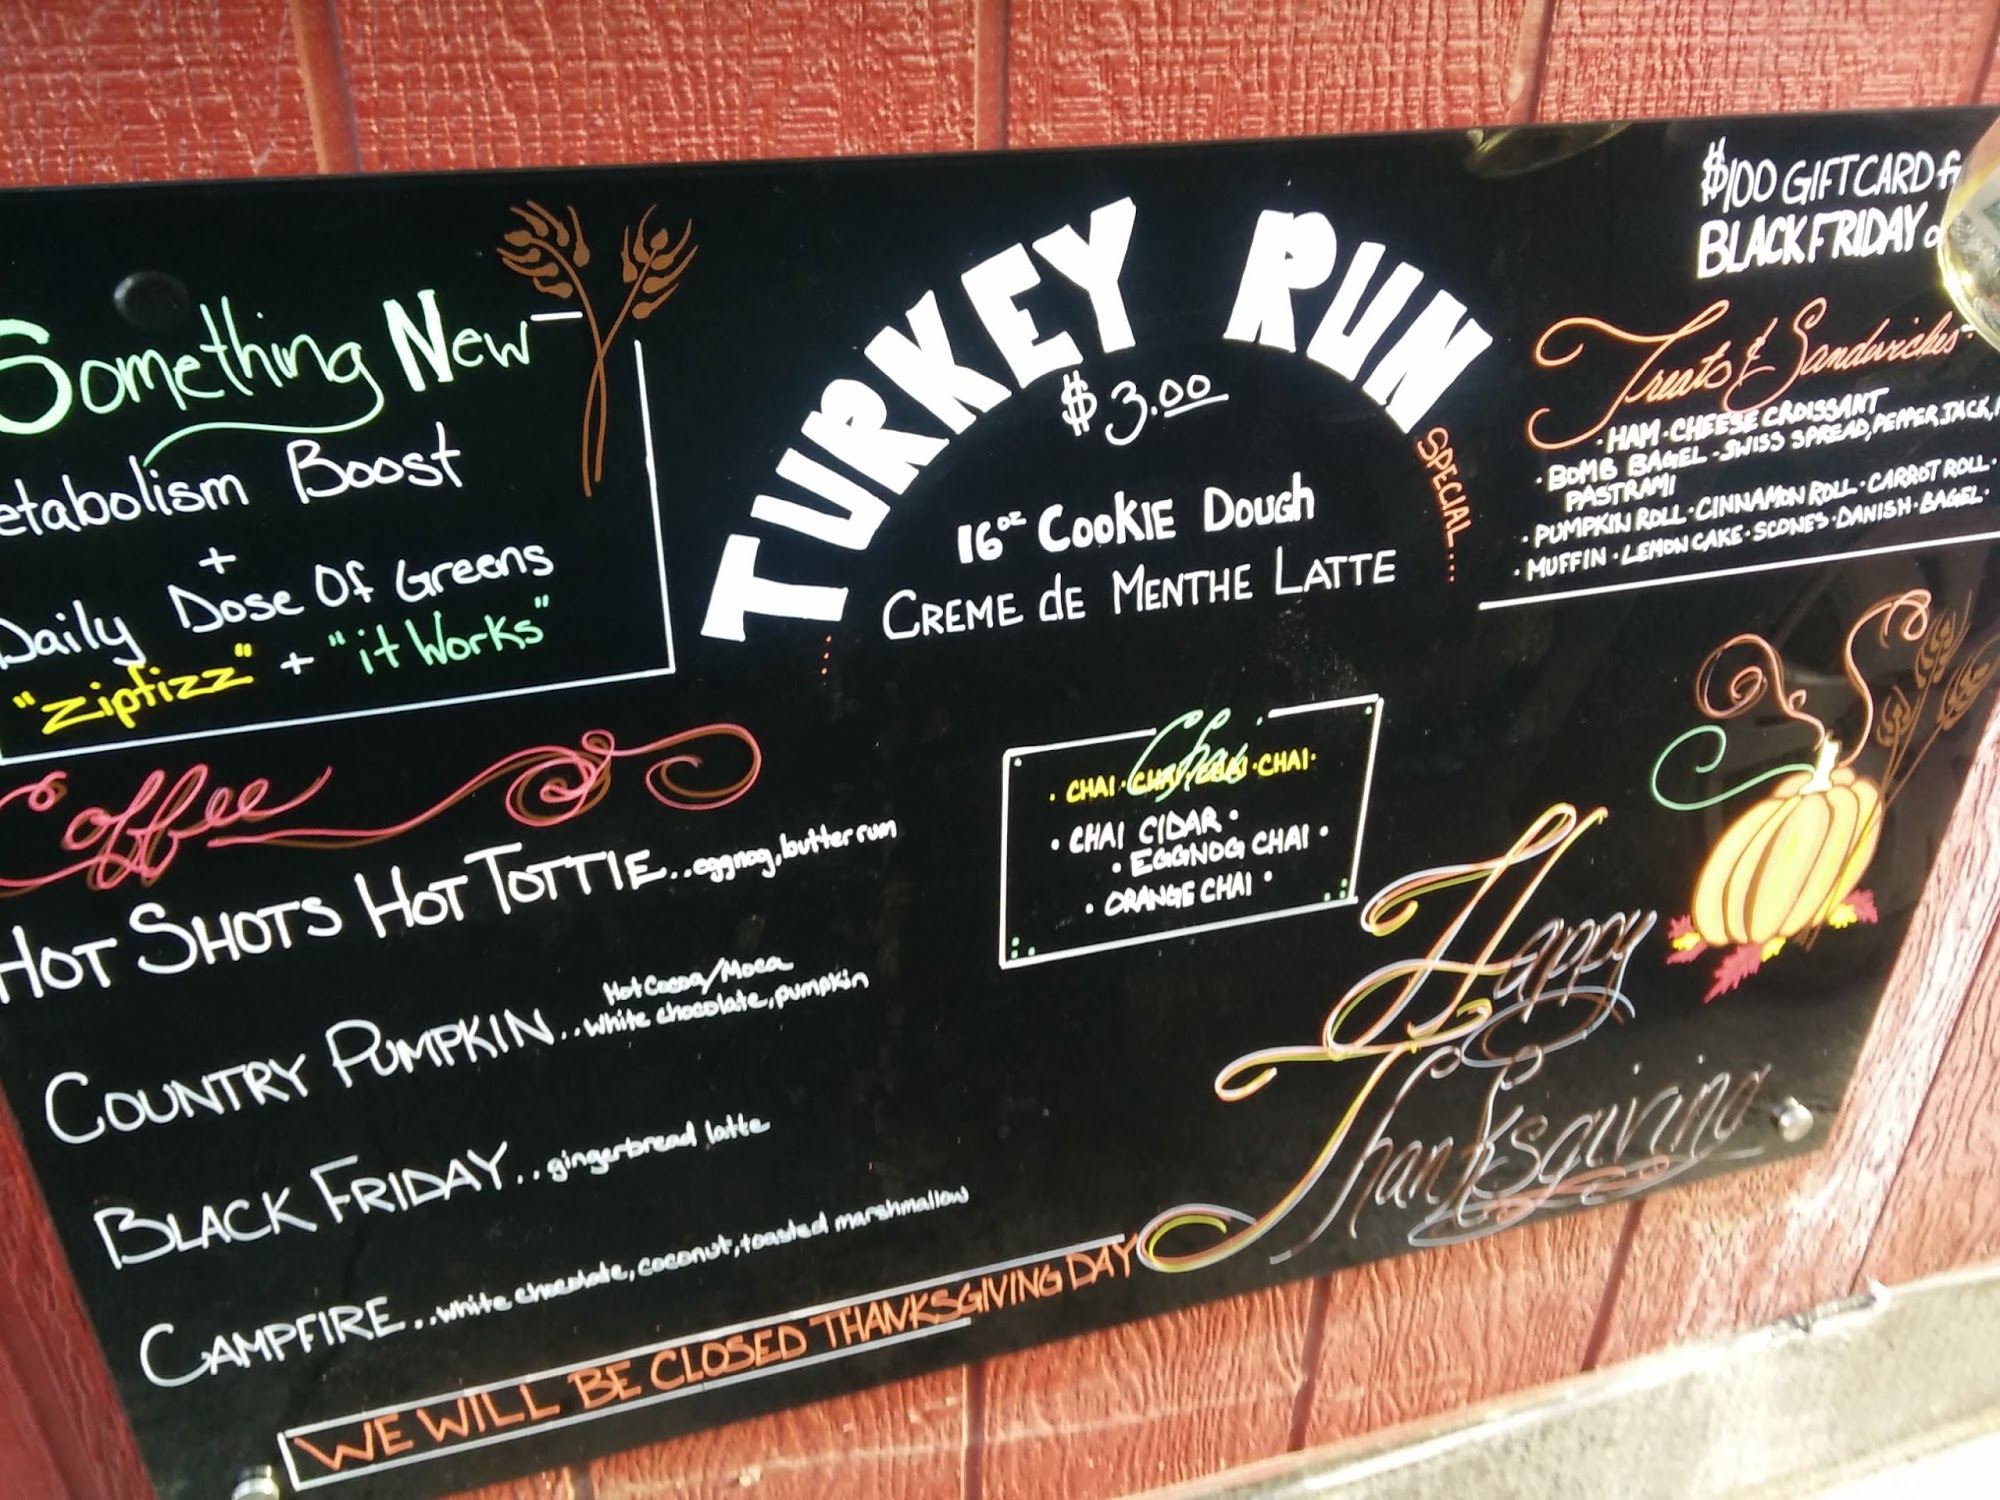 Something New
etabolism Boost
+
Daily Dose Of Greens
"zipfizz" + "it Works"
TURKEY RUN
$3.00
SPECIAL...
16oz COOKIE DOUGH
CREME de MENTHE LATTE
$100 GIFT CARD
BLACK FRIDAY
Treats & Sandwiches
· HAM · CHEESE CROISSANT
· BOMB BAGEL - SWISS SPREAD, PEPPER JACK,
PASTRAMI
· PUMPKIN ROLL · CINNAMON ROLL · CARROT ROLL ·
· MUFFIN · LEMON CAKE · SCONES · DANISH · BAGEL ·
Coffee
HOT SHOTS HOT TOTTIE...eggnog, butter rum
Hot Cocoa/Moca
COUNTRY PUMPKIN...white chocolate, pumpkin
BLACK FRIDAY...gingerbread latte
CAMPFIRE...white chocolate, coconut, toasted marshmallow
Chai
· CHAI · CHAI · CHAI · CHAI ·
· CHAI CIDAR ·
· EGGNOG CHAI ·
· ORANGE CHAI ·
Happy
Thanksgiving
WE WILL BE CLOSED THANKSGIVING DAY